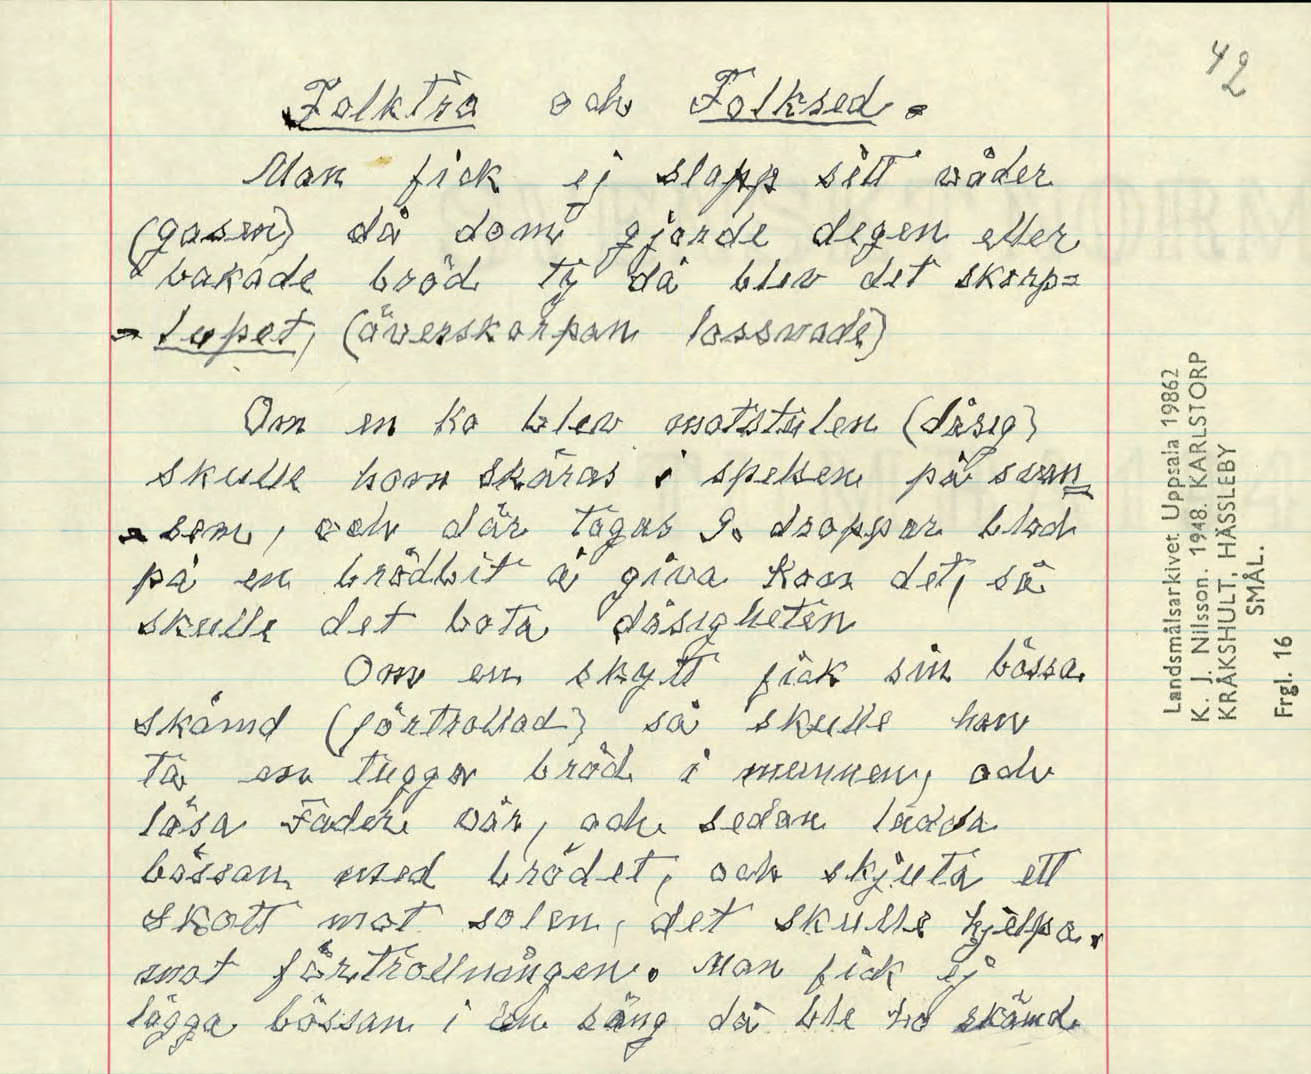 42
Folktro och Folksed.
Man fick ej slapp sitt väder
(gasen) då dom gjorde degen eller
bakade bröd ty då blev det skorp=
=lupet, (överskorpan lossnade)
Om en ko blev motstulen (dåsig)
skulle hon skäras i spetsen på svan
=sen, och där tagas 9. droppar blod
på en brödbit å giva kon det, så
skulle det bota dåsigheten
Om en skytt fick sin bössa
skämd (förtrollad) så skulle han
ta en tugga bröd i munnen, och
läsa Fader vår, och sedan ladda
bössan med brödet, och skjuta ett
skott mot solen, det skulle hjelpa.
mot förtrollningen. Man fick ej
lägga bössan i en säng då ble ho skämd
Landsmålsarkivet Uppsala 19862
K. J. Nilsson. 1948. KARLSTORP
KRÅKSHULT, HÄSSLEBY
SMÅL.
Frgl. 16